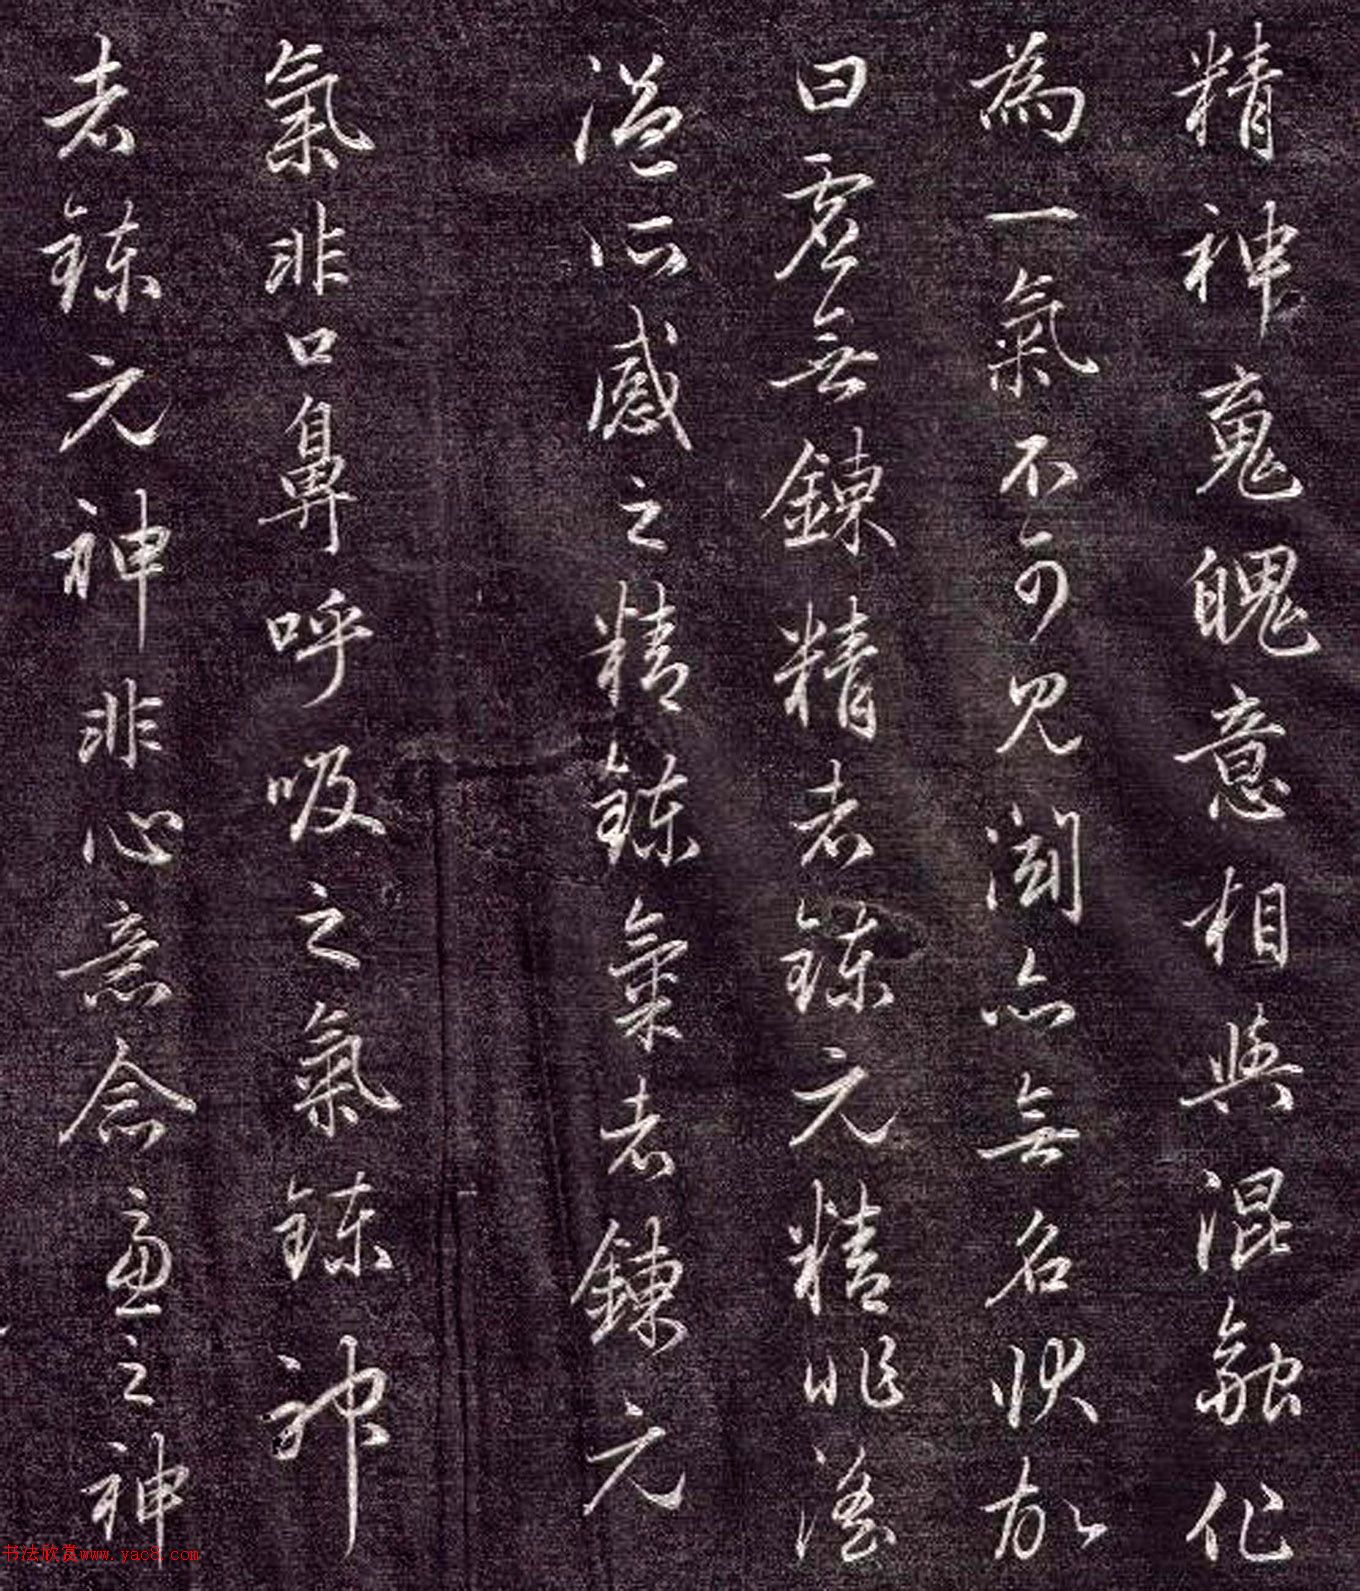 精神魂魄意相與混融化
為一氣不可見聞亦無名狀故
曰虛無鍊精者鍊元精非淫
溢所感之精鍊氣者鍊元
氣非口鼻呼吸之氣鍊神
者鍊元神非心意念慮之神
书法欣赏www.yac8.com